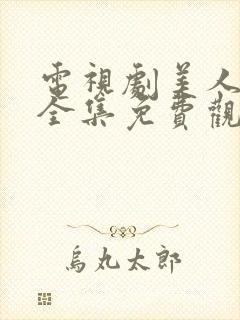 電視劇美人
全集免費觀
烏丸太郎